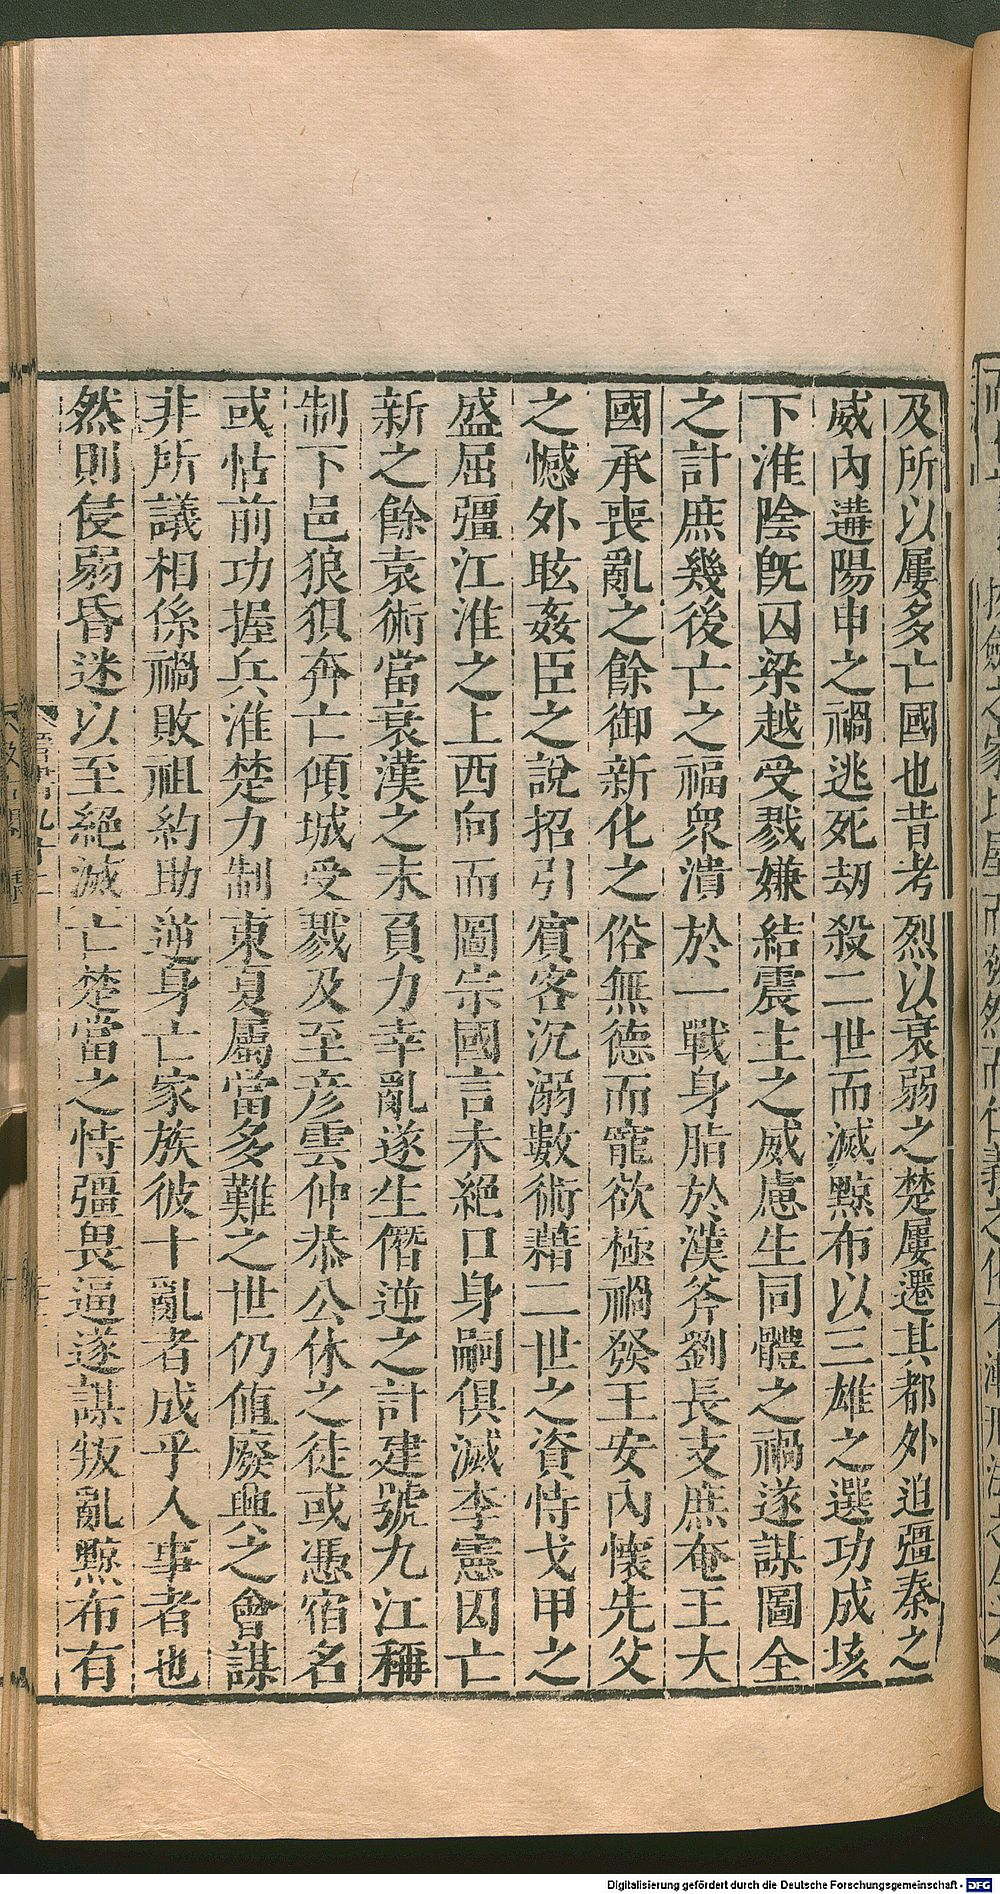 及所以屢多亡國也昔考烈以衰弱之楚屢遷其都外迫彊秦之
威內遘陽申之禍逃死劫殺二世而滅黥布以三雄之選功成垓
下淮陰旣囚梁越受戮嫌結震主之威慮生同體之禍遂謀圖全
之計庶幾後亡之福衆潰於一戰身脂於漢斧劉長支庶奄王大
國承喪亂之餘御新化之俗無德而寵欲極禍發王安內懷先父
之憾外眩姦臣之說招引賓客沉溺數術藉二世之資恃戈甲之
盛屈彊江淮之上西向而圖宗國言未絕口身嗣俱滅李憲因亡
新之餘袁術當衰漢之末負力幸亂遂生僭逆之計建號九江稱
制下邑狼狽奔亡傾城受戮及至彥雲仲恭公休之徒或憑宿名
或怙前功握兵淮楚力制東夏屬當多難之世仍值廢興之會謀
非所議相係禍敗祖約助逆身亡家族彼十亂者成乎人事者也
然則侵弱昏迷以至絕滅亡楚當之恃彊畏逼遂謀叛亂黥布有
Digitalisierung gefördert durch die Deutsche Forschungsgemeinschaft - DFG